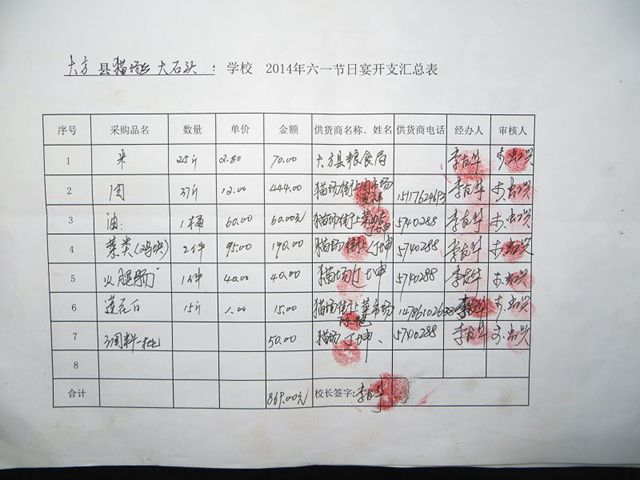 大方县猫场乡大石头：学校 2014年六一节日宴开支汇总表
序号 采购品名 数量 单价 金额 供货商名称、姓名 供货商电话 经办人 审核人
1 米 25斤 2.80 70.00 大方县粮食局 李友华
2 肉 37斤 12.00 444.00 猫场街上 李友华
3 油 1桶 60.00 60.00元 猫场街上 5740288 李友华
4 菜类 2件 95.00 190.00 猫场街上 5740288 李友华
5 火腿肠 1件 40.00 40.00 猫场 5740288 李友华
6 莲花白 15斤 1.00 15.00 猫场街上
7 调料一批 50.00 猫场 5740288 李友华
8
合计 869.00元 校长签字:李友华